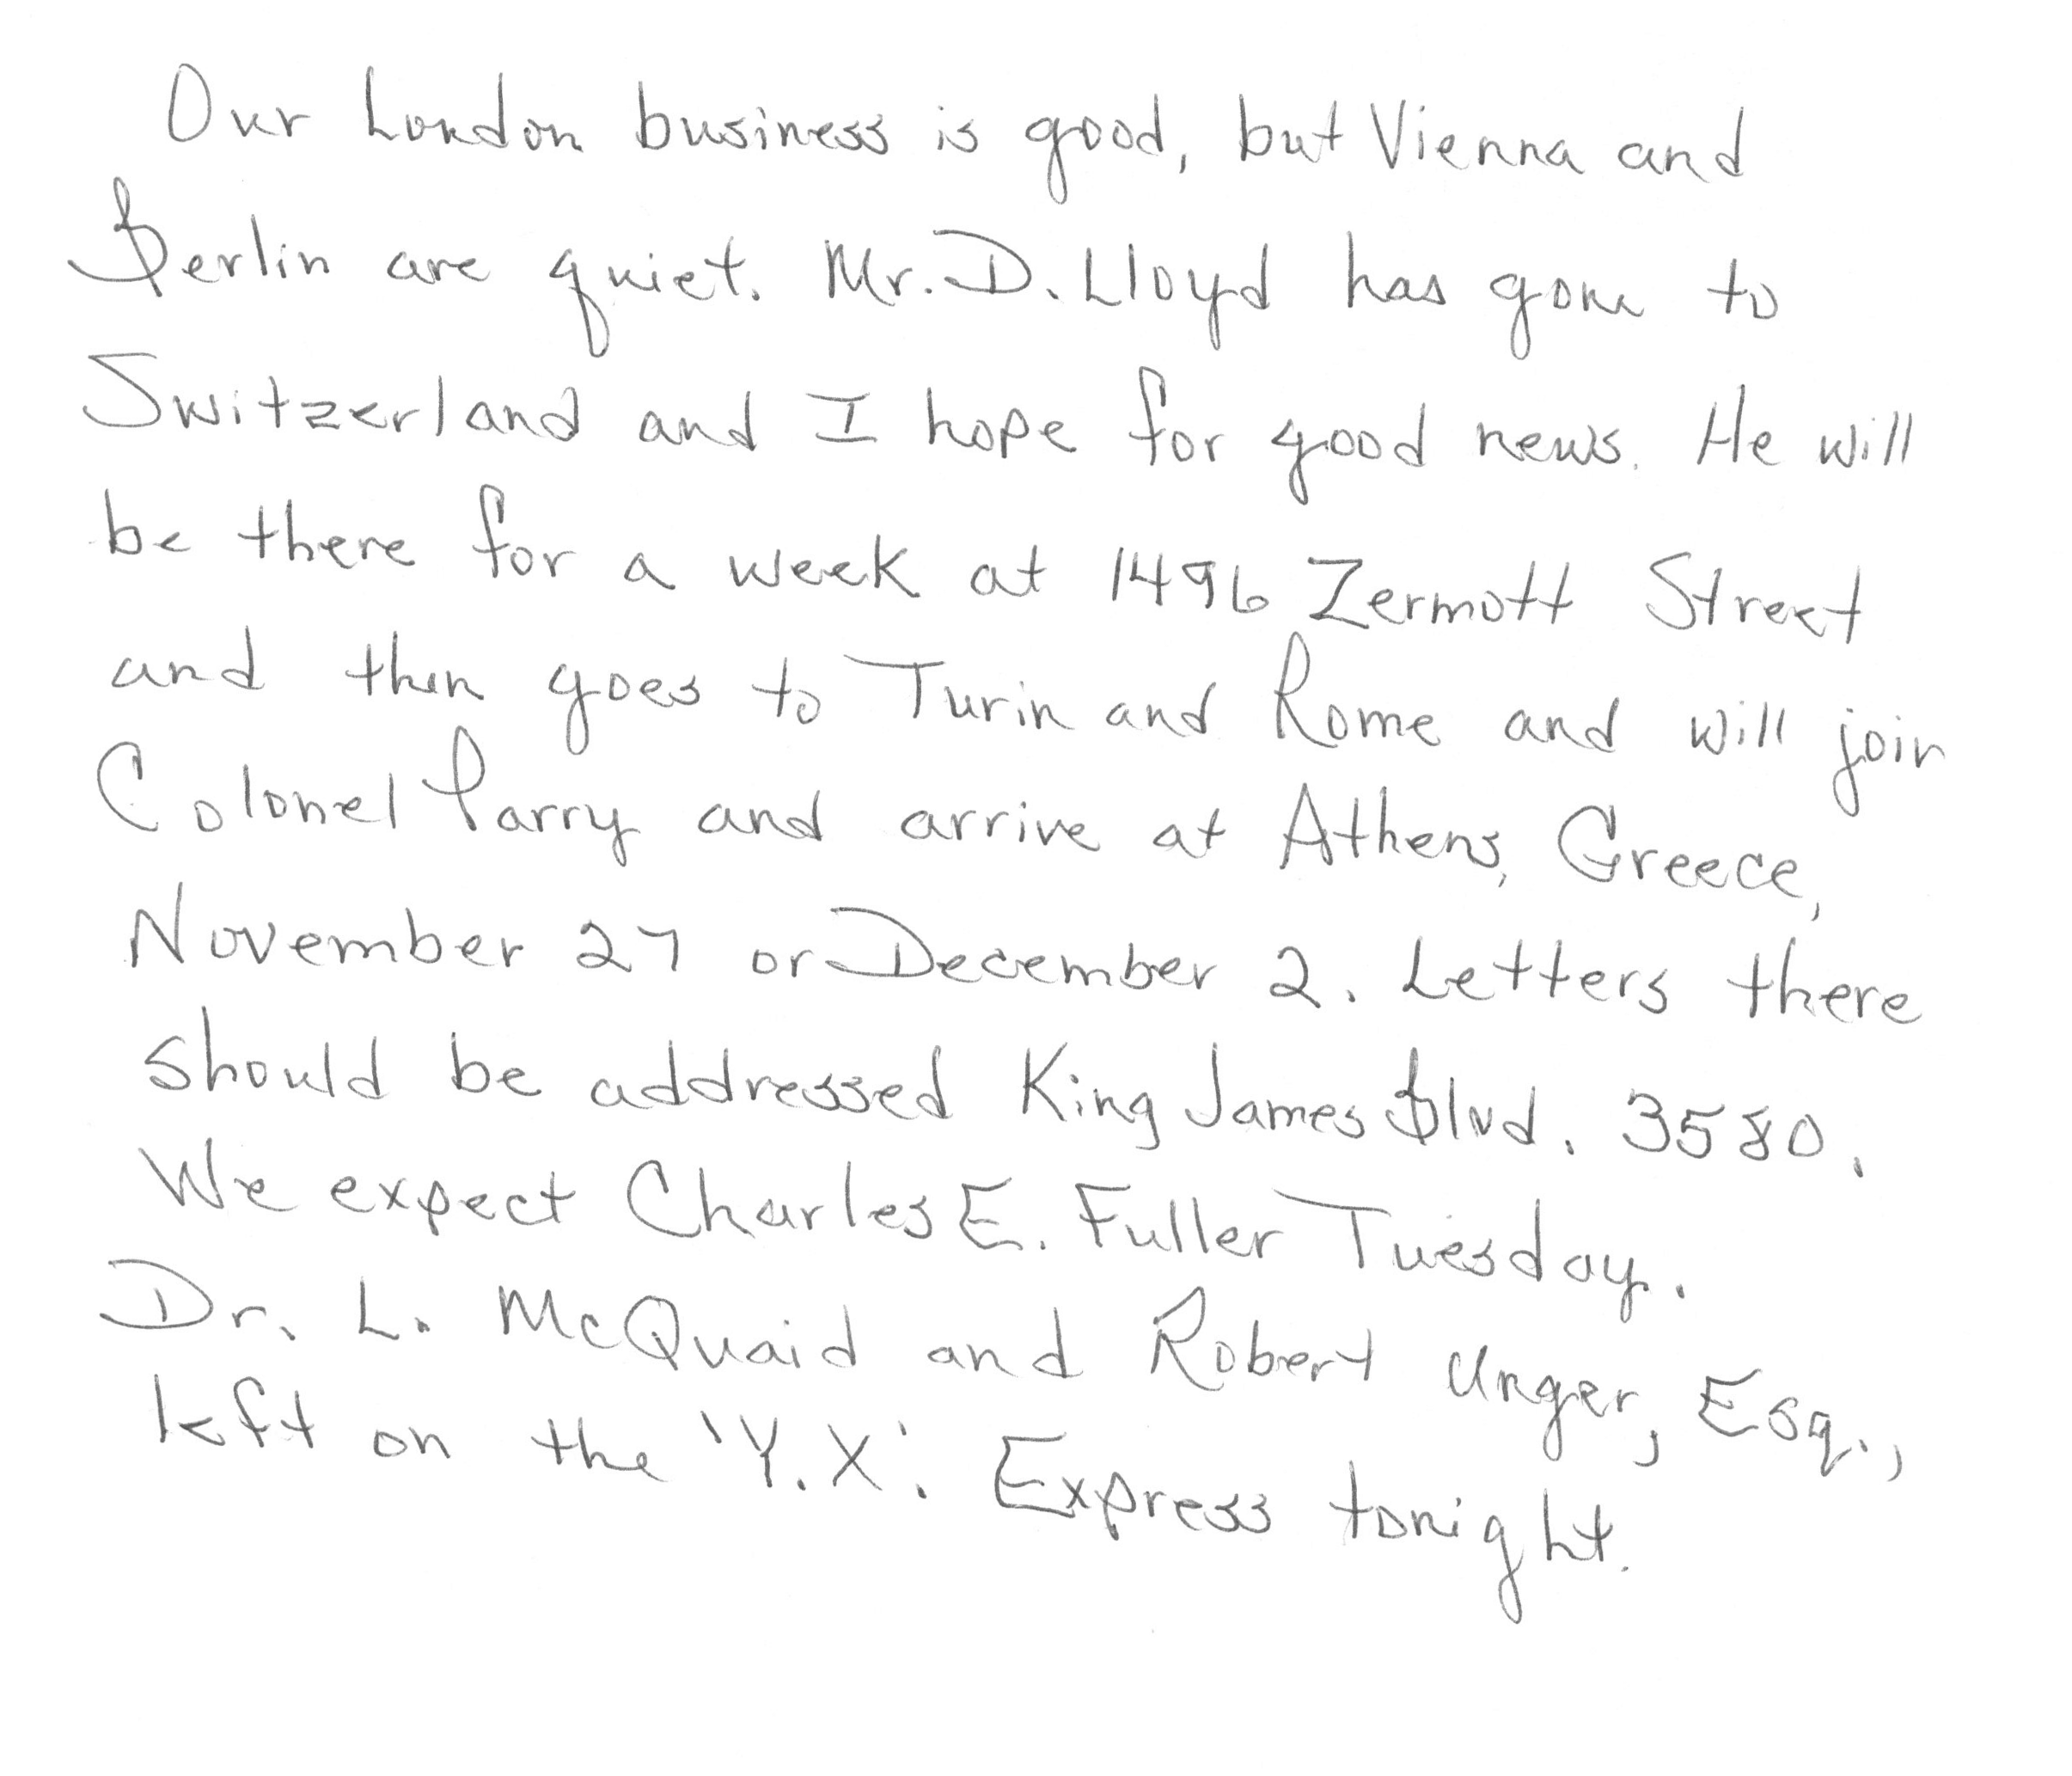 Our London business is good, but Vienna and
Berlin are quiet. Mr. D. Lloyd has gone to
Switzerland and I hope for good news. He will
be there for a week at 1496 Zermott Street
and then goes to Turin and Rome and will join
Colonel Parry and arrive at Athens, Greece,
November 27 or December 2. Letters there
should be addressed King James Blvd. 3580.
We expect Charles E. Fuller Tuesday.
Dr. L. McQuaid and Robert Unger, Esq.,
left on the 'Y.X'. Express tonight.